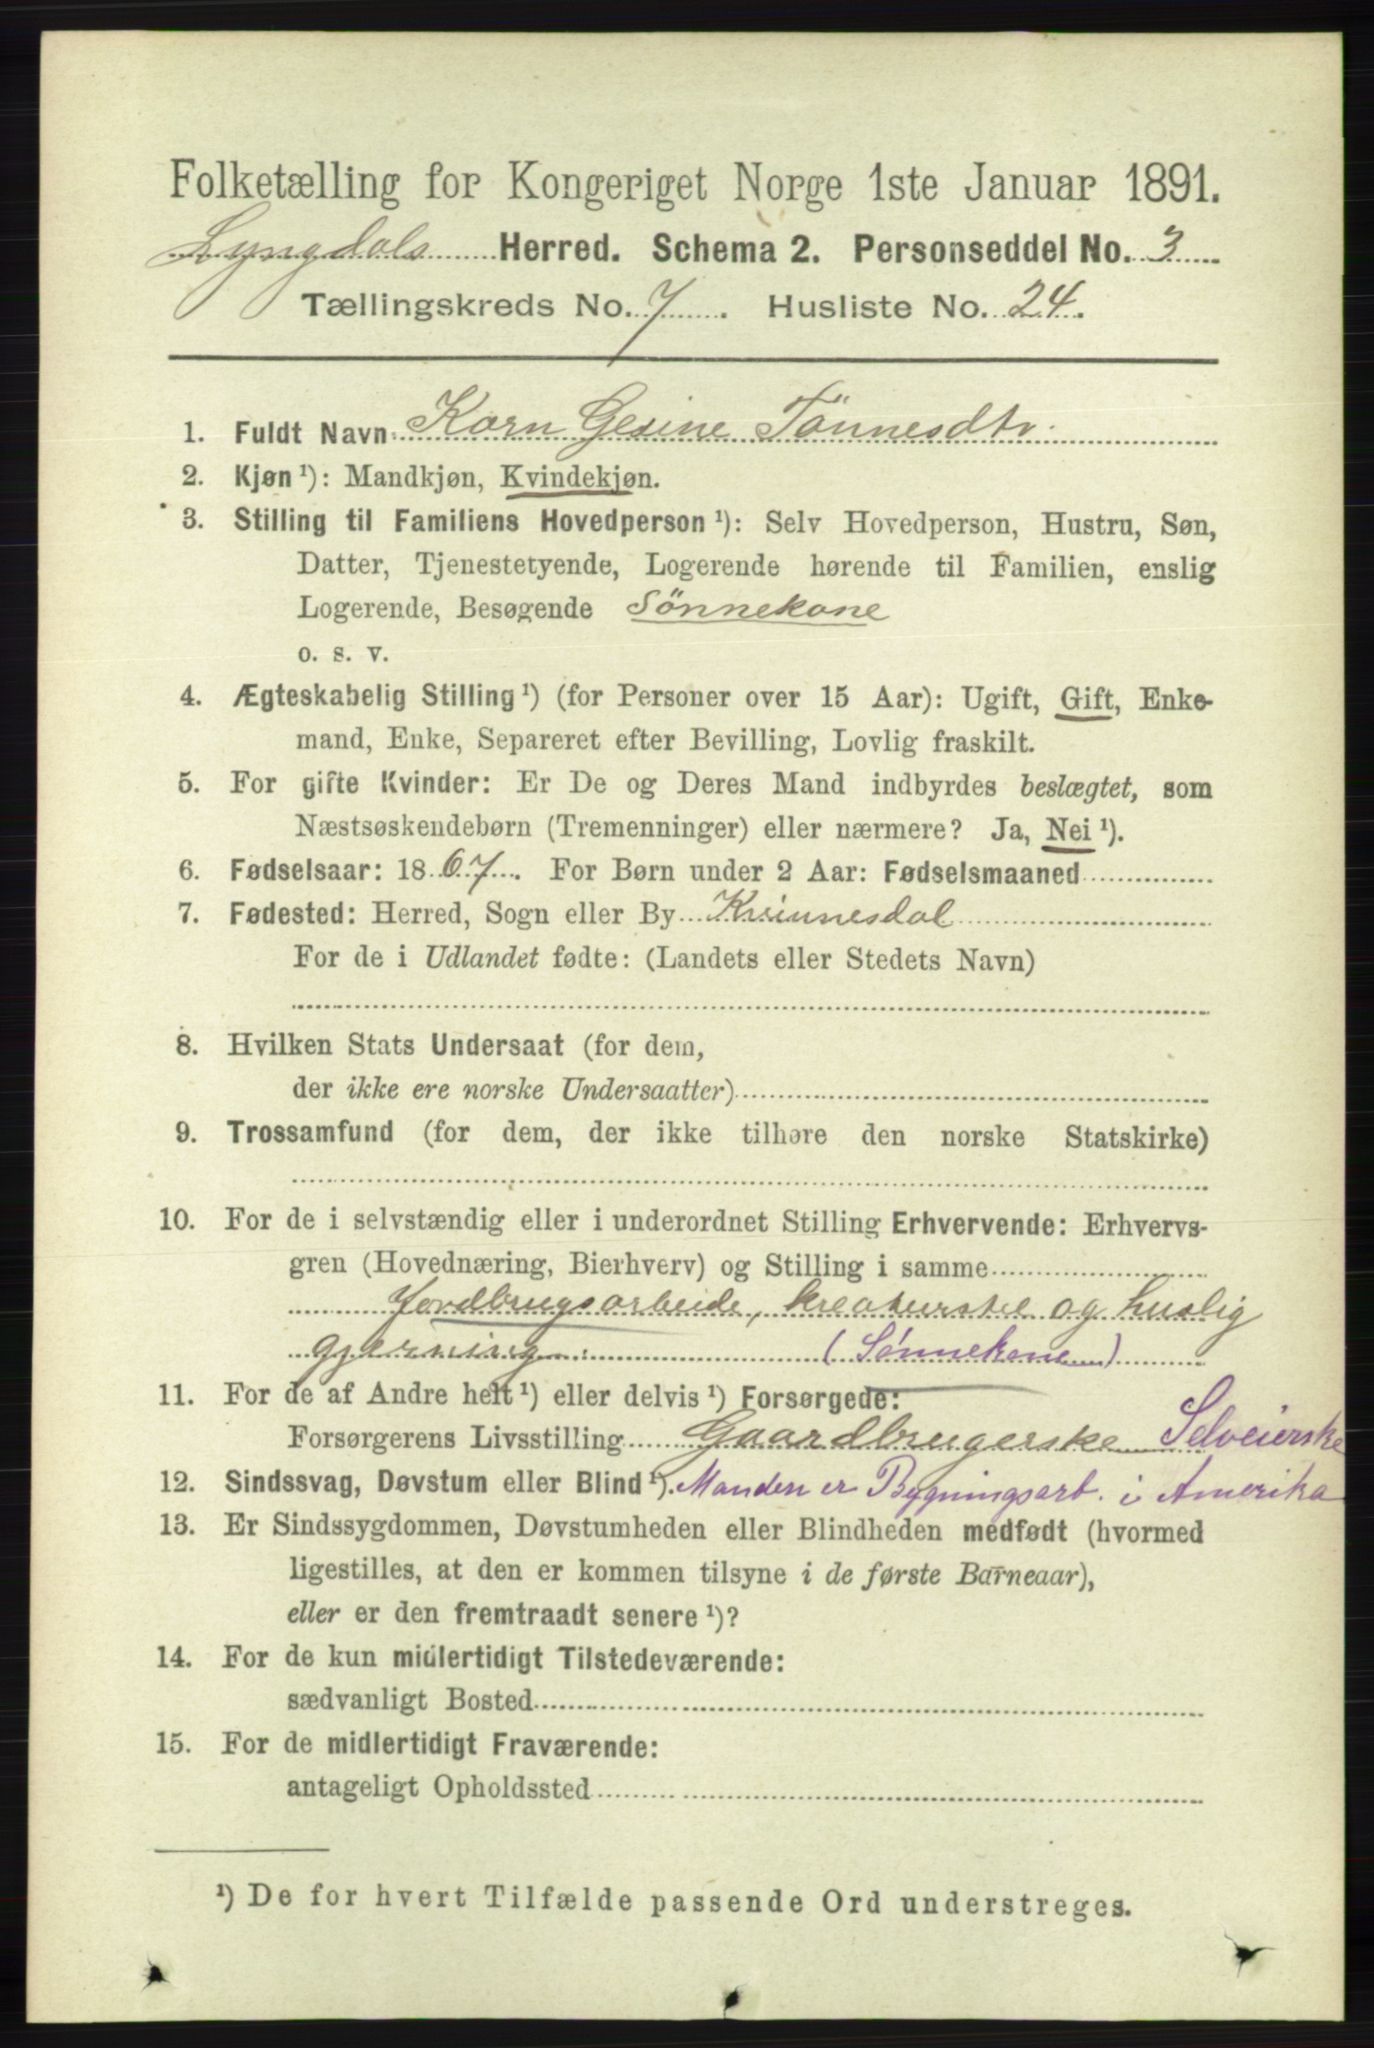 Folketælling for Kongeriget Norge 1ste Januar 1891.
Lyngdals Herred. Schema 2. Personseddel No. 3
Tællingskreds No. 7. Husliste No. 24.
1. Fuldt Navn: Karn Gesine Tönnesdtr.
2. Kjøn ¹): Mandkjøn, Kvindekjøn.
3. Stilling til Familiens Hovedperson ¹): Selv Hovedperson, Hustru, Søn,
Datter, Tjenestetyende, Logerende hørende til Familien, enslig
Logerende, Besøgende Sönnekone
o. s. v.
4. Ægteskabelig Stilling ¹) (for Personer over 15 Aar): Ugift, Gift, Enke-
mand, Enke, Separeret efter Bevilling, Lovlig fraskilt.
5. For gifte Kvinder: Er De og Deres Mand indbyrdes beslægtet, som
Næstsøskendebørn (Tremenninger) eller nærmere? Ja, Nei ¹).
6. Fødselsaar: 1867. For Børn under 2 Aar: Fødselsmaaned
7. Fødested: Herred, Sogn eller By Kvinnesdal
For de i Udlandet fødte: (Landets eller Stedets Navn)
8. Hvilken Stats Undersaat (for dem,
der ikke ere norske Undersaatter)
9. Trossamfund (for dem, der ikke tilhøre den norske Statskirke)
10. For de i selvstændig eller i underordnet Stilling Erhvervende: Erhvervs-
gren (Hovednæring, Bierhverv) og Stilling i samme
Jordbrugsarbeide, kreaturstel og huslig
gjerning (Sönnekone)
11. For de af Andre helt ¹) eller delvis ¹) Forsørgede:
Forsørgerens Livsstilling Gaardbrugerske Selveierske
12. Sindssvag, Døvstum eller Blind ¹). Manden er Bygningsarb. i Amerika
13. Er Sindssygdommen, Døvstumheden eller Blindheden medfødt (hvormed
ligestilles, at den er kommen tilsyne i de første Barneaar),
eller er den fremtraadt senere ¹)?
14. For de kun midlertidigt Tilstedeværende:
sædvanligt Bosted
15. For de midlertidigt Fraværende:
antageligt Opholdssted
¹) De for hvert Tilfælde passende Ord understreges.